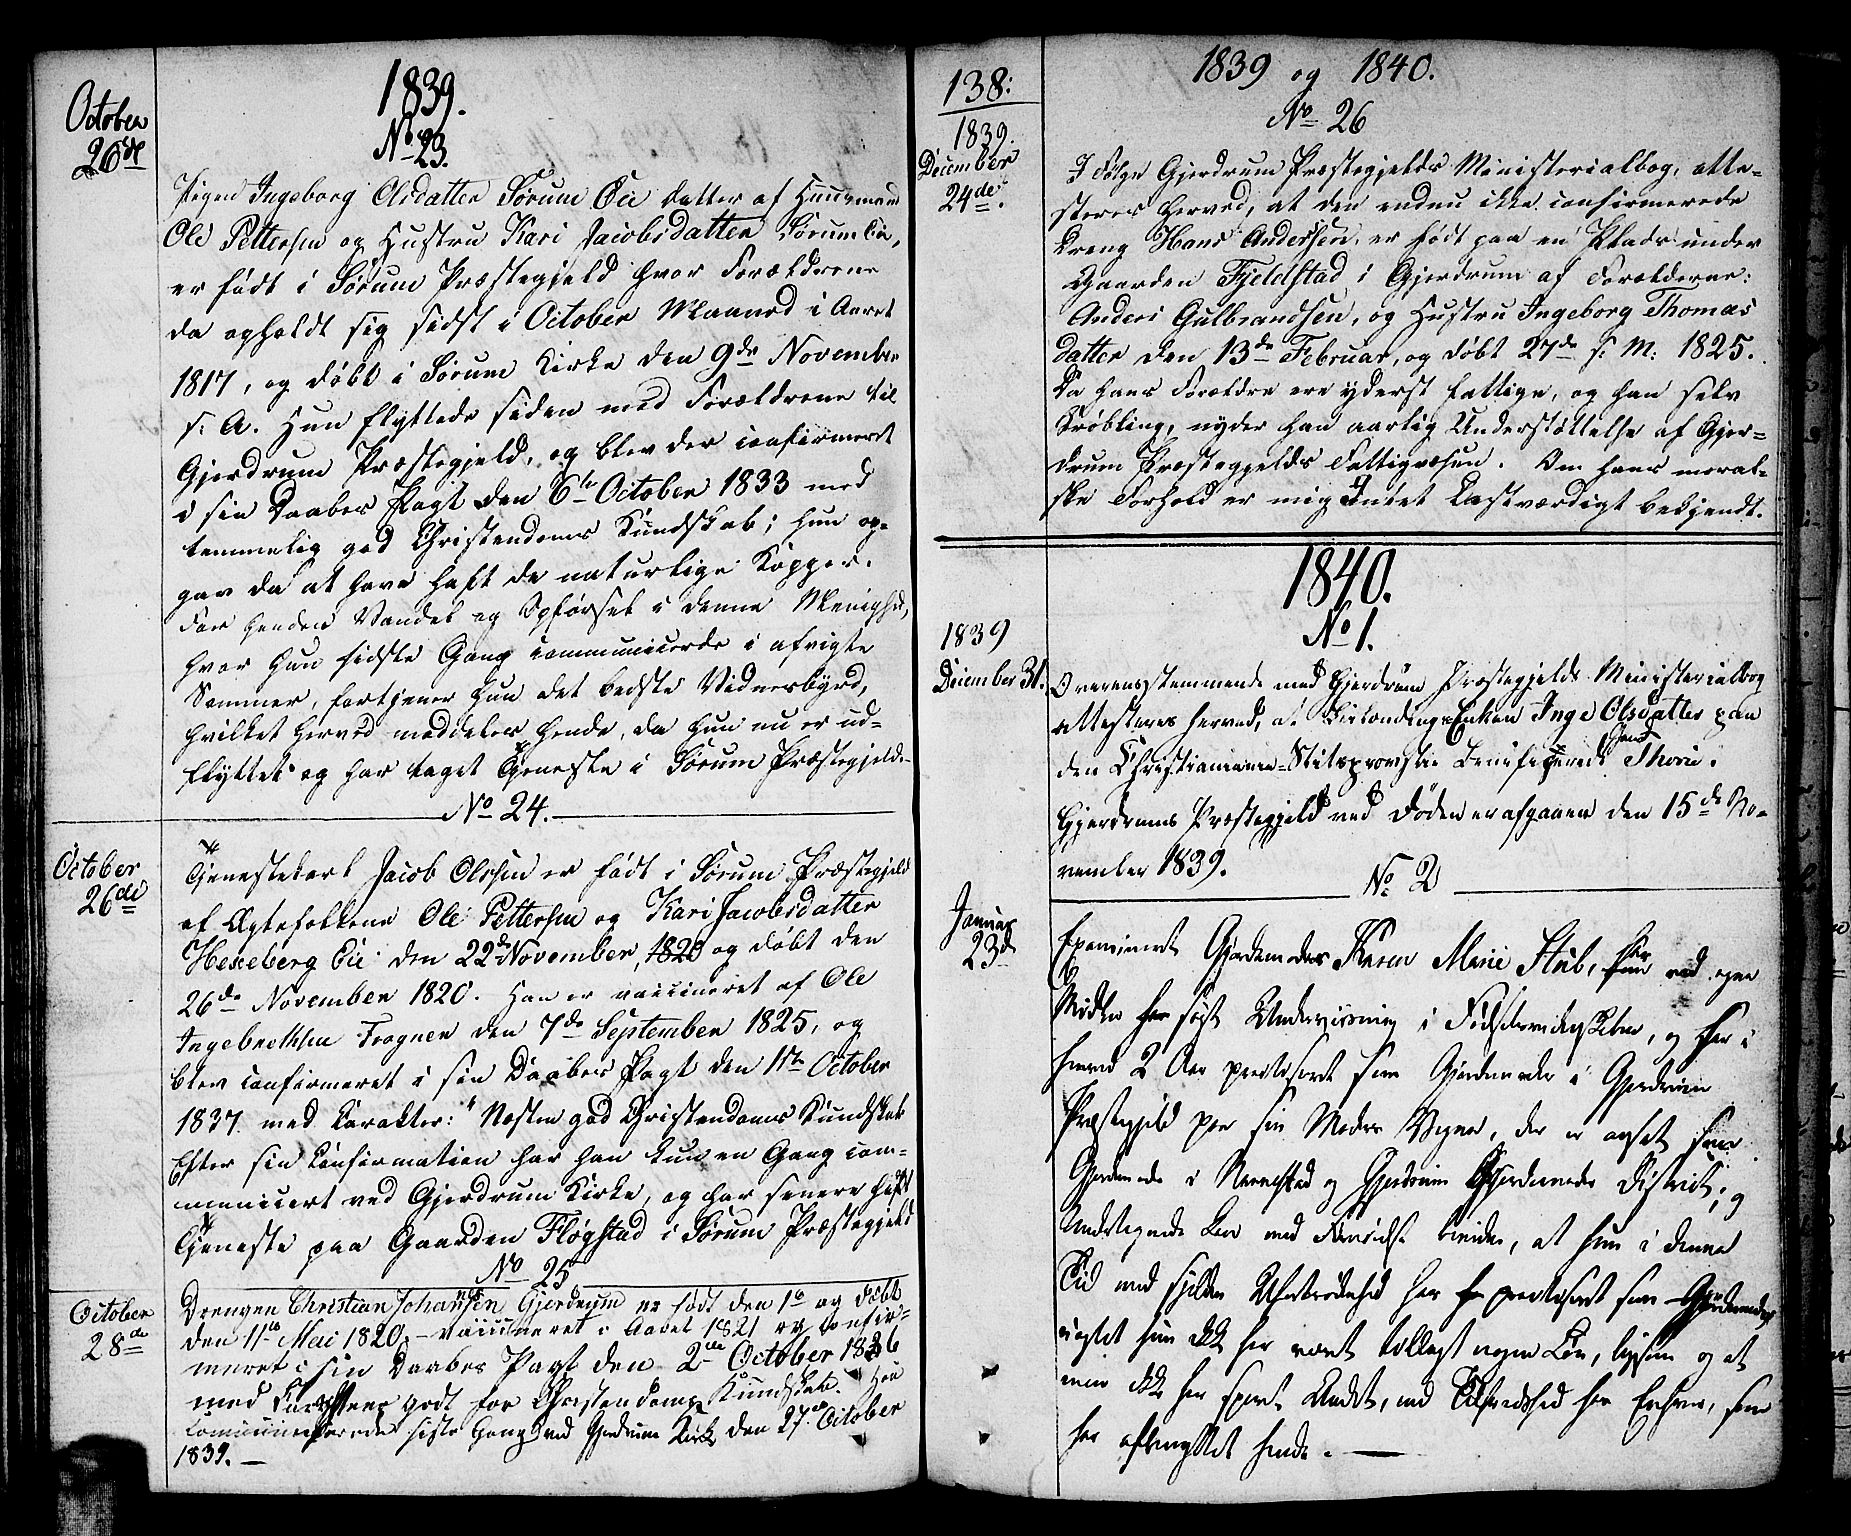 1839.
No 23.
October
26de
Pigen Ingeborg Olsdatter Sørum Eie Datter af Huusmand
Ole Pettersen og Hustru Kari Jacobsdatter Sørum Eie,
er født i Sørum Præstegjeld hvor Forældrene
da opholdt sig sidst i October Maaned i Aaret
1817, og døbt i Sørum Kirke den 9de November
s. A. Hun flyttede siden med Forældrene til
Gjerdrum Præstegjeld, og blev der confirmeret
i sin Daabes Pagt den 6te October 1833 med
temmelig god Christendoms Kundskab; hun op-
gav da at have haft de naturlige Kopper.
For hendes Vandel og Opførsel i denne Menighed,
hvor hun sidste Gang communicerde i afvigte
Sommer, fortjener hun det bedste Vidnesbyrd,
hvilket herved meddeles hende, da hun nu er ud-
flyttet og har taget Tjeneste i Sørum Præstegjeld.
No 24.
October
26de
Tjenestekarl Jacob Olssen er født i Sørum Præstegjeld
af Ægtefolkene Ole Pettersen og Kari Jacobsdatter
Hexeberg Eie den 22de November, 1820 og døbt den
26de November 1820. Han er vaccineret af Ole
Ingebrethsen Frogner den 7de September 1825, og
blev confirmeret i sin Daabes Pagt den 1te October
1837 med Karakter: "Næsten god Christendoms Kundskab
Efter sin Confirmation har han kun en Gang com-
municert ved Gjerdrum Kirke, og har senere haft
Tjeneste paa Gaarden Fløgstad i Sørum Præstegjeld
No 25
October
28de
Drengen Christian Johansen Gjerdrum er født den 1te og døbt
den 11te Mai 1820, - vaccineret i Aaret 1821 og confir-
meret i sin Daabes Pagt den 2de October 1836
med Karakter godt for Christendoms Kundskab. Han
communicerede sidste Gang ved Gjerdrum Kirke den 27de October
1839. -
138:
1839 og 1840.
No 26
1839.
December
24de.
I Følge Gjerdrum Præstegjelds Ministerialbog, atte-
steres herved, at den endnu ikke confirmerede
Dreng Hans Anderssen, er født paa en Plads under
Gaarden Fjeldstad i Gjerdrum af Forælderne:
Anders Gulbrandsen, og Hustru Ingeborg Thomas
datter den 13de Februar, og døbt 27de s. M: 1825.
Da hans Forældre ere yderst fattige, og han selv
Krøbling, nyder han aarlig Understøttelse af Gjer-
drum Præstegjelds Fattigvæsen. Om hans moral-
ske Forhold er mig Intet Lastværdigt bekjendt.
1840.
No 1.
1839
December 31.
Overensstemmende med Gjerdrum Præstegjelds Ministerialbog
attesteres herved, at Enken Inge Olsdatter paa
den Christiania-Stiftsprovstie beneficerede Gaard Thoru i
Gjerdrums Præstegjeld ved Døden er afgaaen den 15de No-
vember 1839.
No 2
Januar
23de
Examineret Gjordemoder Karen Marie Stub, har ved egne
Midler søgt Underviisning i Fødselsvidenskaben, og har i
henved 2 Aar practiseret som Gjordemoder i Gjerdrum
Præstegjeld paa sin Moders Vegne, der er ansat som
Gjordemoder i Nannestad og Gjerdrum Gjordemoder District; og
Undertegnede kan med Føie bevidne, at hun i denne
Tid med sjelden Ufortrødenhed har practiseret som Gjordemoder
uagtet hun ikke har været tillagt nogen Løn, ligesom og at
man ikke har sport Andet, end Tilfredshed hos Enhver, som
har afbenyttet hende. -